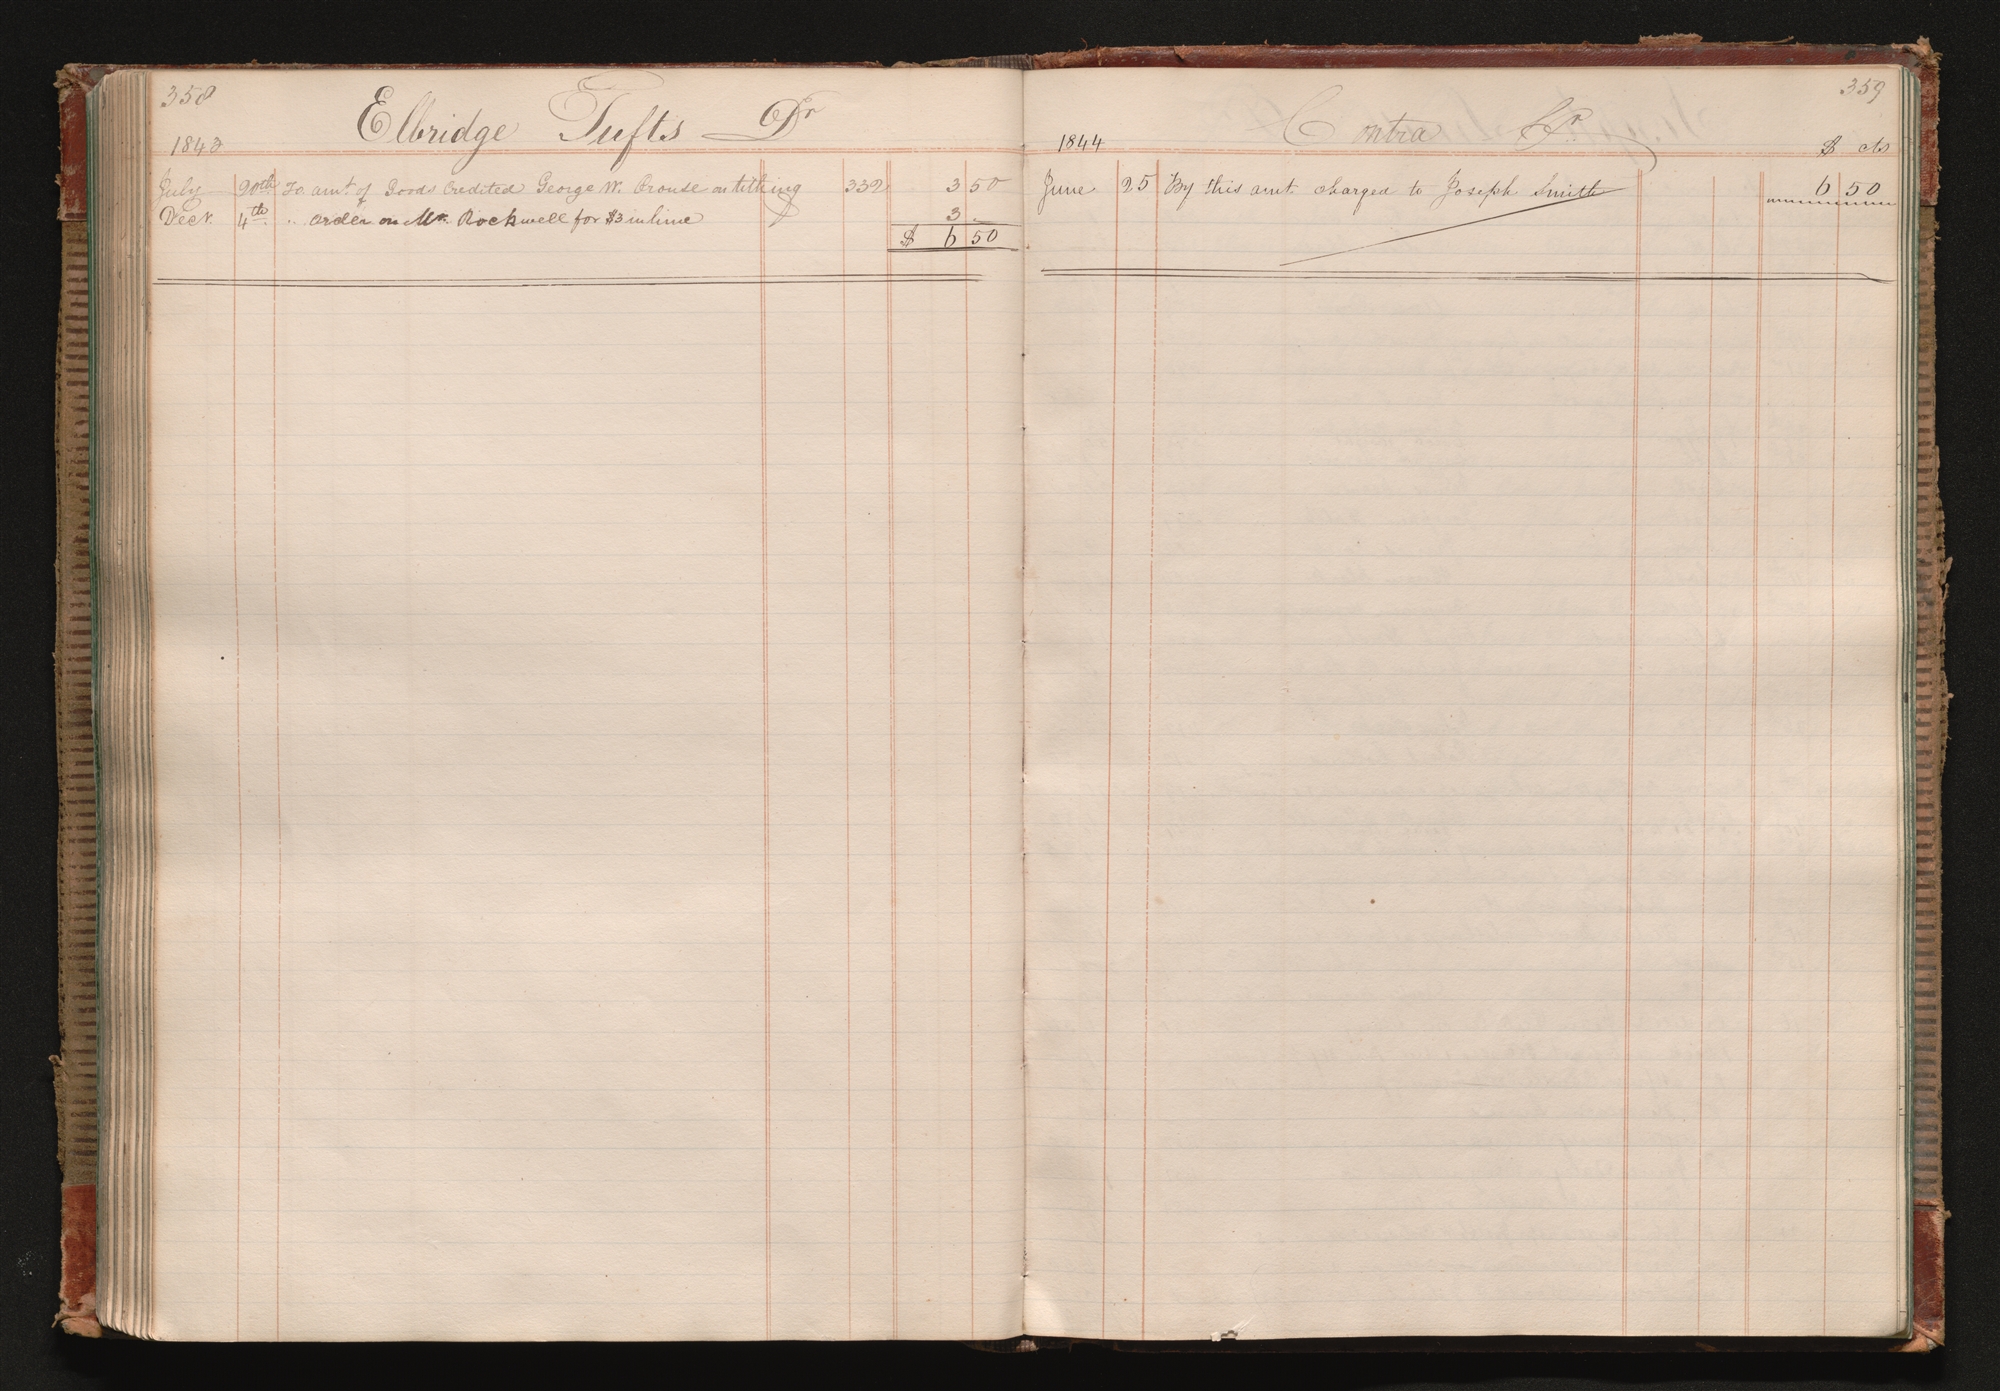 358
Elbridge Tufts Dr
1843
July 20th To amt. of Goods Credited George W. Crouse on tithing 332 3 50
Decr. 4th " order on Mr. Rockwell for $3 in lime 3 -
$ 6 50
359
Contra Cr.
1844 $ cts
June 25 By this amt charged to Joseph Smith 6 50